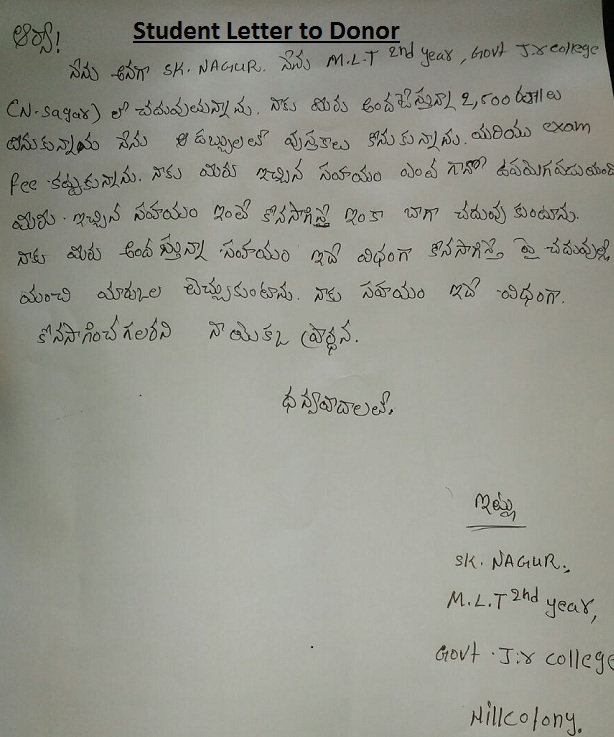 Student Letter to Donor
ఆర్యా!
నేను అనగా SK. NAGUR. నేను M.L.T 2nd year, Govt Jr college
(N-sagar) లో చదువుతున్నాను. నాకు మీరు అందజేస్తున్నా 2,500 రూ॥లు
తీసుకున్నాను నేను ఆ డబ్బులతో పుస్తకాలు కొనుకున్నాను. మరియు exam
fee కట్టుకున్నాను. నాకు మీరు ఇచ్చిన సహాయం ఎంత గానో ఉపయెగపడుతుంది
మీరు. ఇచ్చిన సహాయం ఇంతే కొనసాగిస్తే ఇంకా బాగా చదువు కుంటాను.
నాకు మీరు అంద స్తున్నా సహాయం ఇదే విధంగా కొనసాగిస్తే పై చదువుల్లో
మంచి మార్కుల తెచ్చుకుంటాను. నాకు సహాయం ఇదే విధంగా.
కొనసాగించ గలరని నా యొక్క ప్రార్ధన.
ధన్యవాదాలతో.
ఇట్లు
SK. NAGUR.,
M.L.T 2nd year,
Govt. J.r college
Hillcolony.